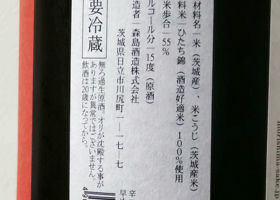 材料名 米(茨城産)、米こうじ(茨城産米)
料米 ひたち錦(酒造好適米)100%使用
米歩合 55%
ルコール分 15度(原酒)
造者 森島酒造株式会社
茨城県日立市川尻町1-17-7
要冷蔵
無ろ過生原酒、オリが沈殿する事が
ありますが異常ではございません。
飲酒は20歳になってから。